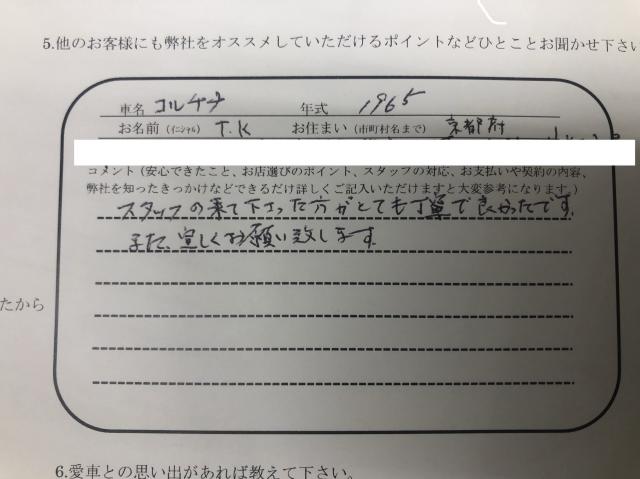 5.他のお客様にも弊社をオススメしていただけるポイントなどひとことお聞かせ下さい
車名 コルチナ 年式 1965
お名前(イニシャル) T.K お住まい(市町村名まで) 京都府
コメント(安心できたこと、お店選びのポイント、スタッフの対応、お支払いや契約の内容、
弊社を知ったきっかけなどできるだけ詳しくご記入いただけますと大変参考になります。)
スタッフの来て下さった方がとても丁寧で良かったです。
また、宜しくお願い致します。
たから
6.愛車との思い出があれば教えて下さい。